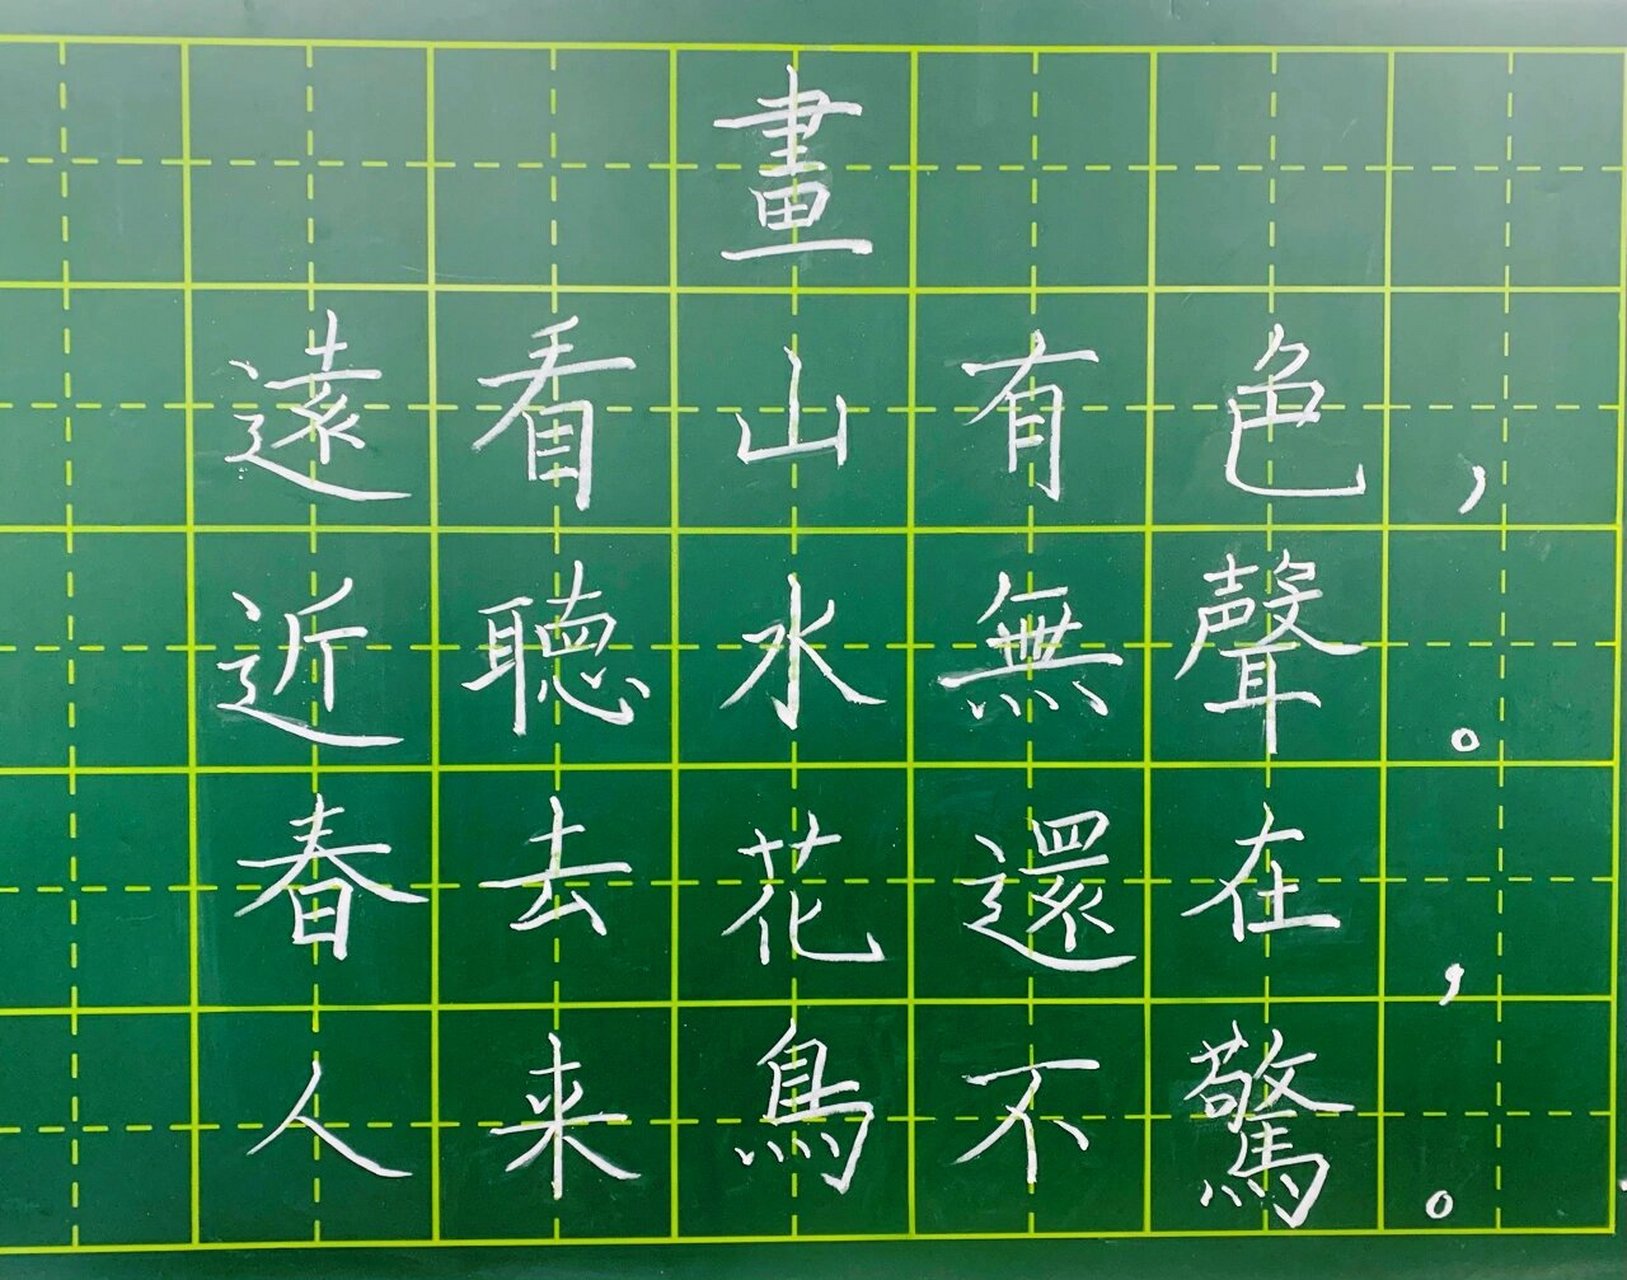 畫
遠看山有色，
近聽水無聲。
春去花還在，
人来鳥不驚。